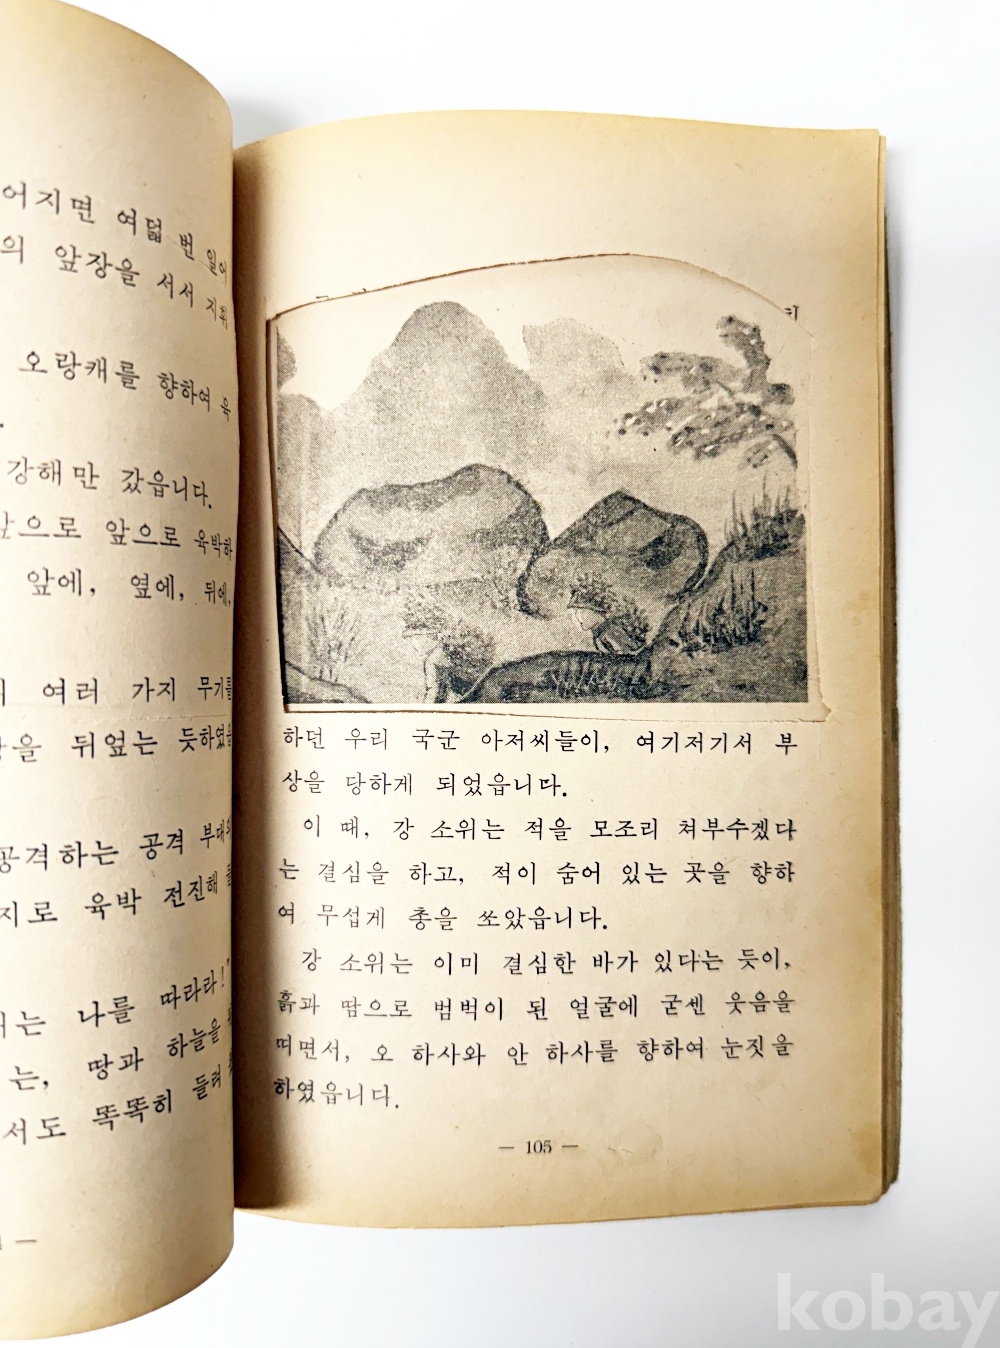 어지면 여덟 번 일어
의 앞장을 서서 지휘
오랑캐를 향하여 육
강해만 갔읍니다.
앞으로 앞으로 육박하
앞에, 옆에, 뒤에,
여러 가지 무기를
을 뒤엎는 듯하였을
공격하는 공격 부대의
지로 육박 전진해 들
는 나를 따라라!"
는, 땅과 하늘을
서도 똑똑히 들려
하던 우리 국군 아저씨들이, 여기저기서 부
상을 당하게 되었읍니다.
이 때, 강 소위는 적을 모조리 쳐부수겠다
는 결심을 하고, 적이 숨어 있는 곳을 향하
여 무섭게 총을 쏘았읍니다.
강 소위는 이미 결심한 바가 있다는 듯이,
흙과 땀으로 범벅이 된 얼굴에 굳센 웃음을
띠면서, 오 하사와 안 하사를 향하여 눈짓을
하였읍니다.
— 105 —
kobay